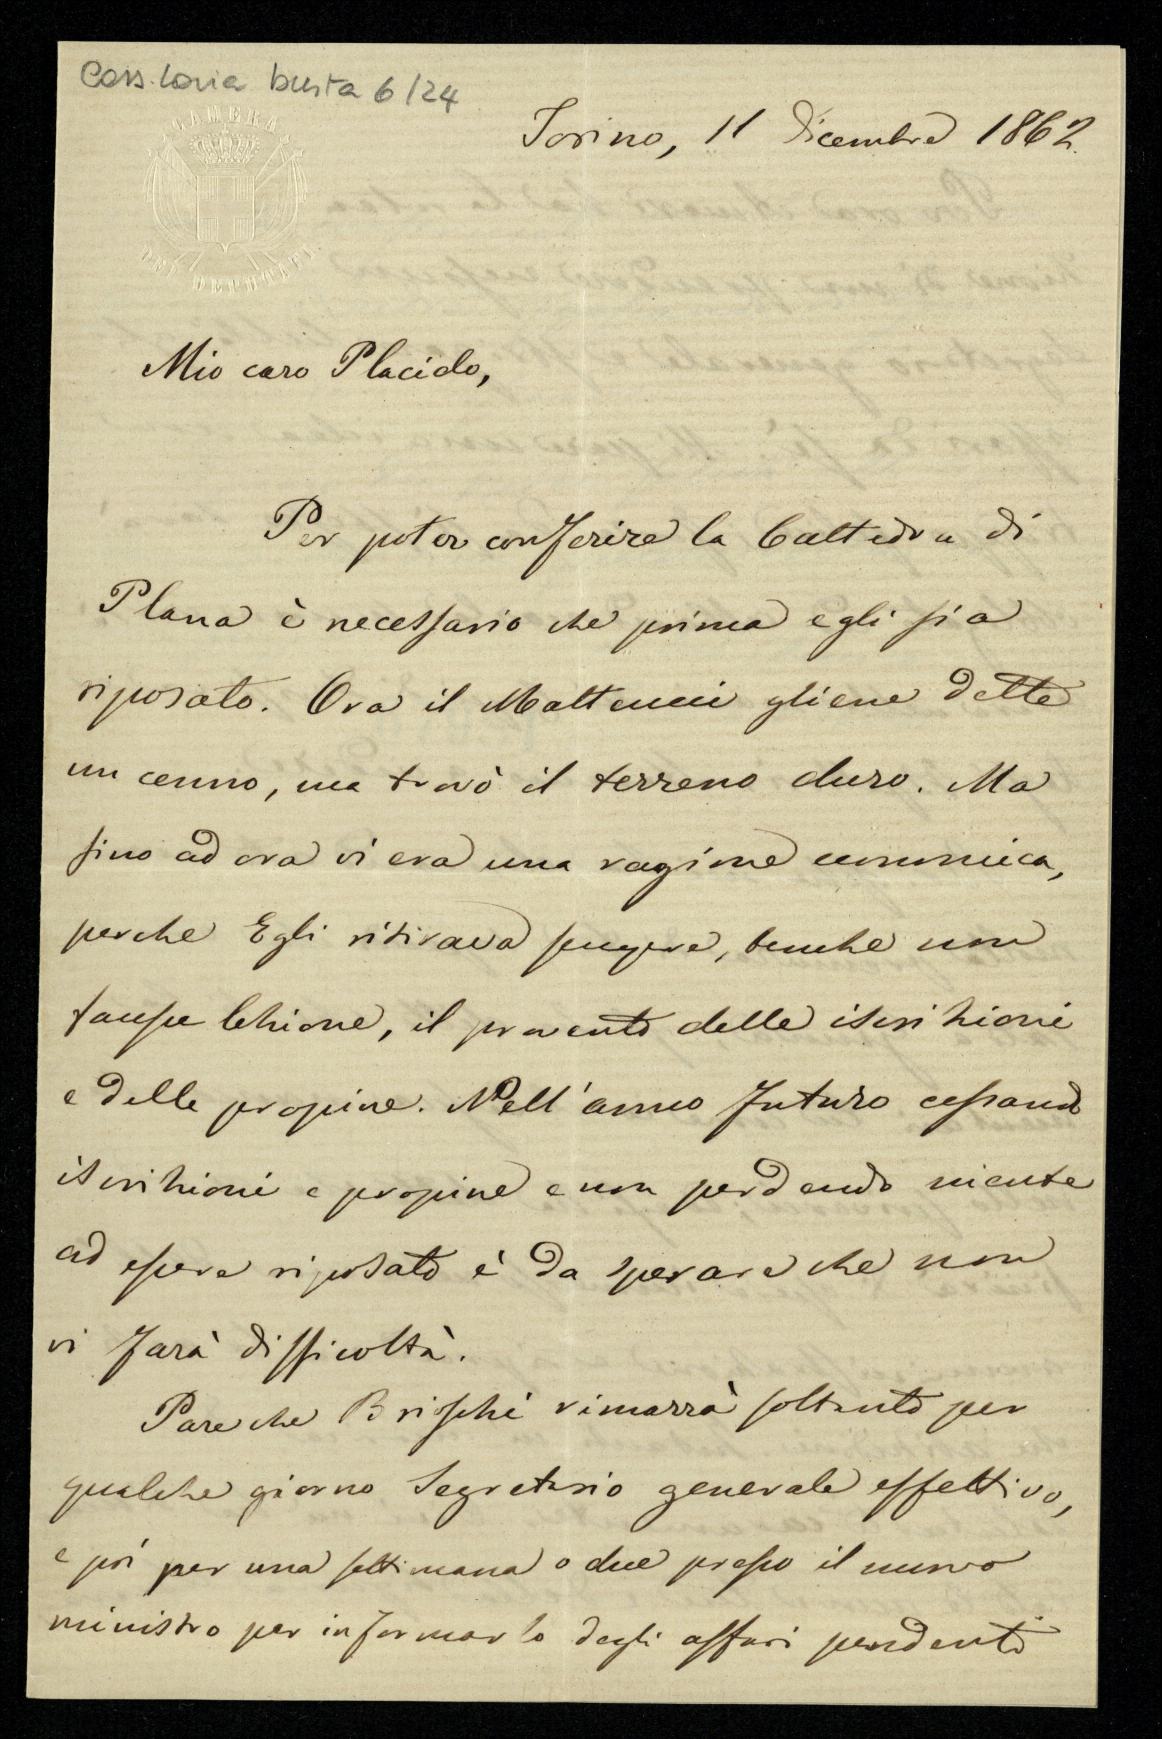 Cass. Loria busta 6/24
CAMERA
DEI DEPUTATI
Torino, 11 Dicembre 1862.
Mio caro Placido,
Per poter conferire la Cattedra di
Plana è necessario che prima egli sia
riposato. Ora il Matteucci gliene dette
un cenno, ma trovò il terreno duro. Ma
sino ad ora vi era una ragione economica,
perche Egli ritirava sempre, benche non
facesse lezione, il provento delle iscrizioni
e delle propine. Nell'anno futuro cessando
iscrizioni e propine e non perdendo niente
ad essere riposato è da sperare che non
vi sarà difficoltà.
Pare che Brioschi rimarrà soltanto per
qualche giorno Segretario generale effettivo,
e poi per una settimana o due presso il nuovo
ministro per informarlo degli affari pendenti